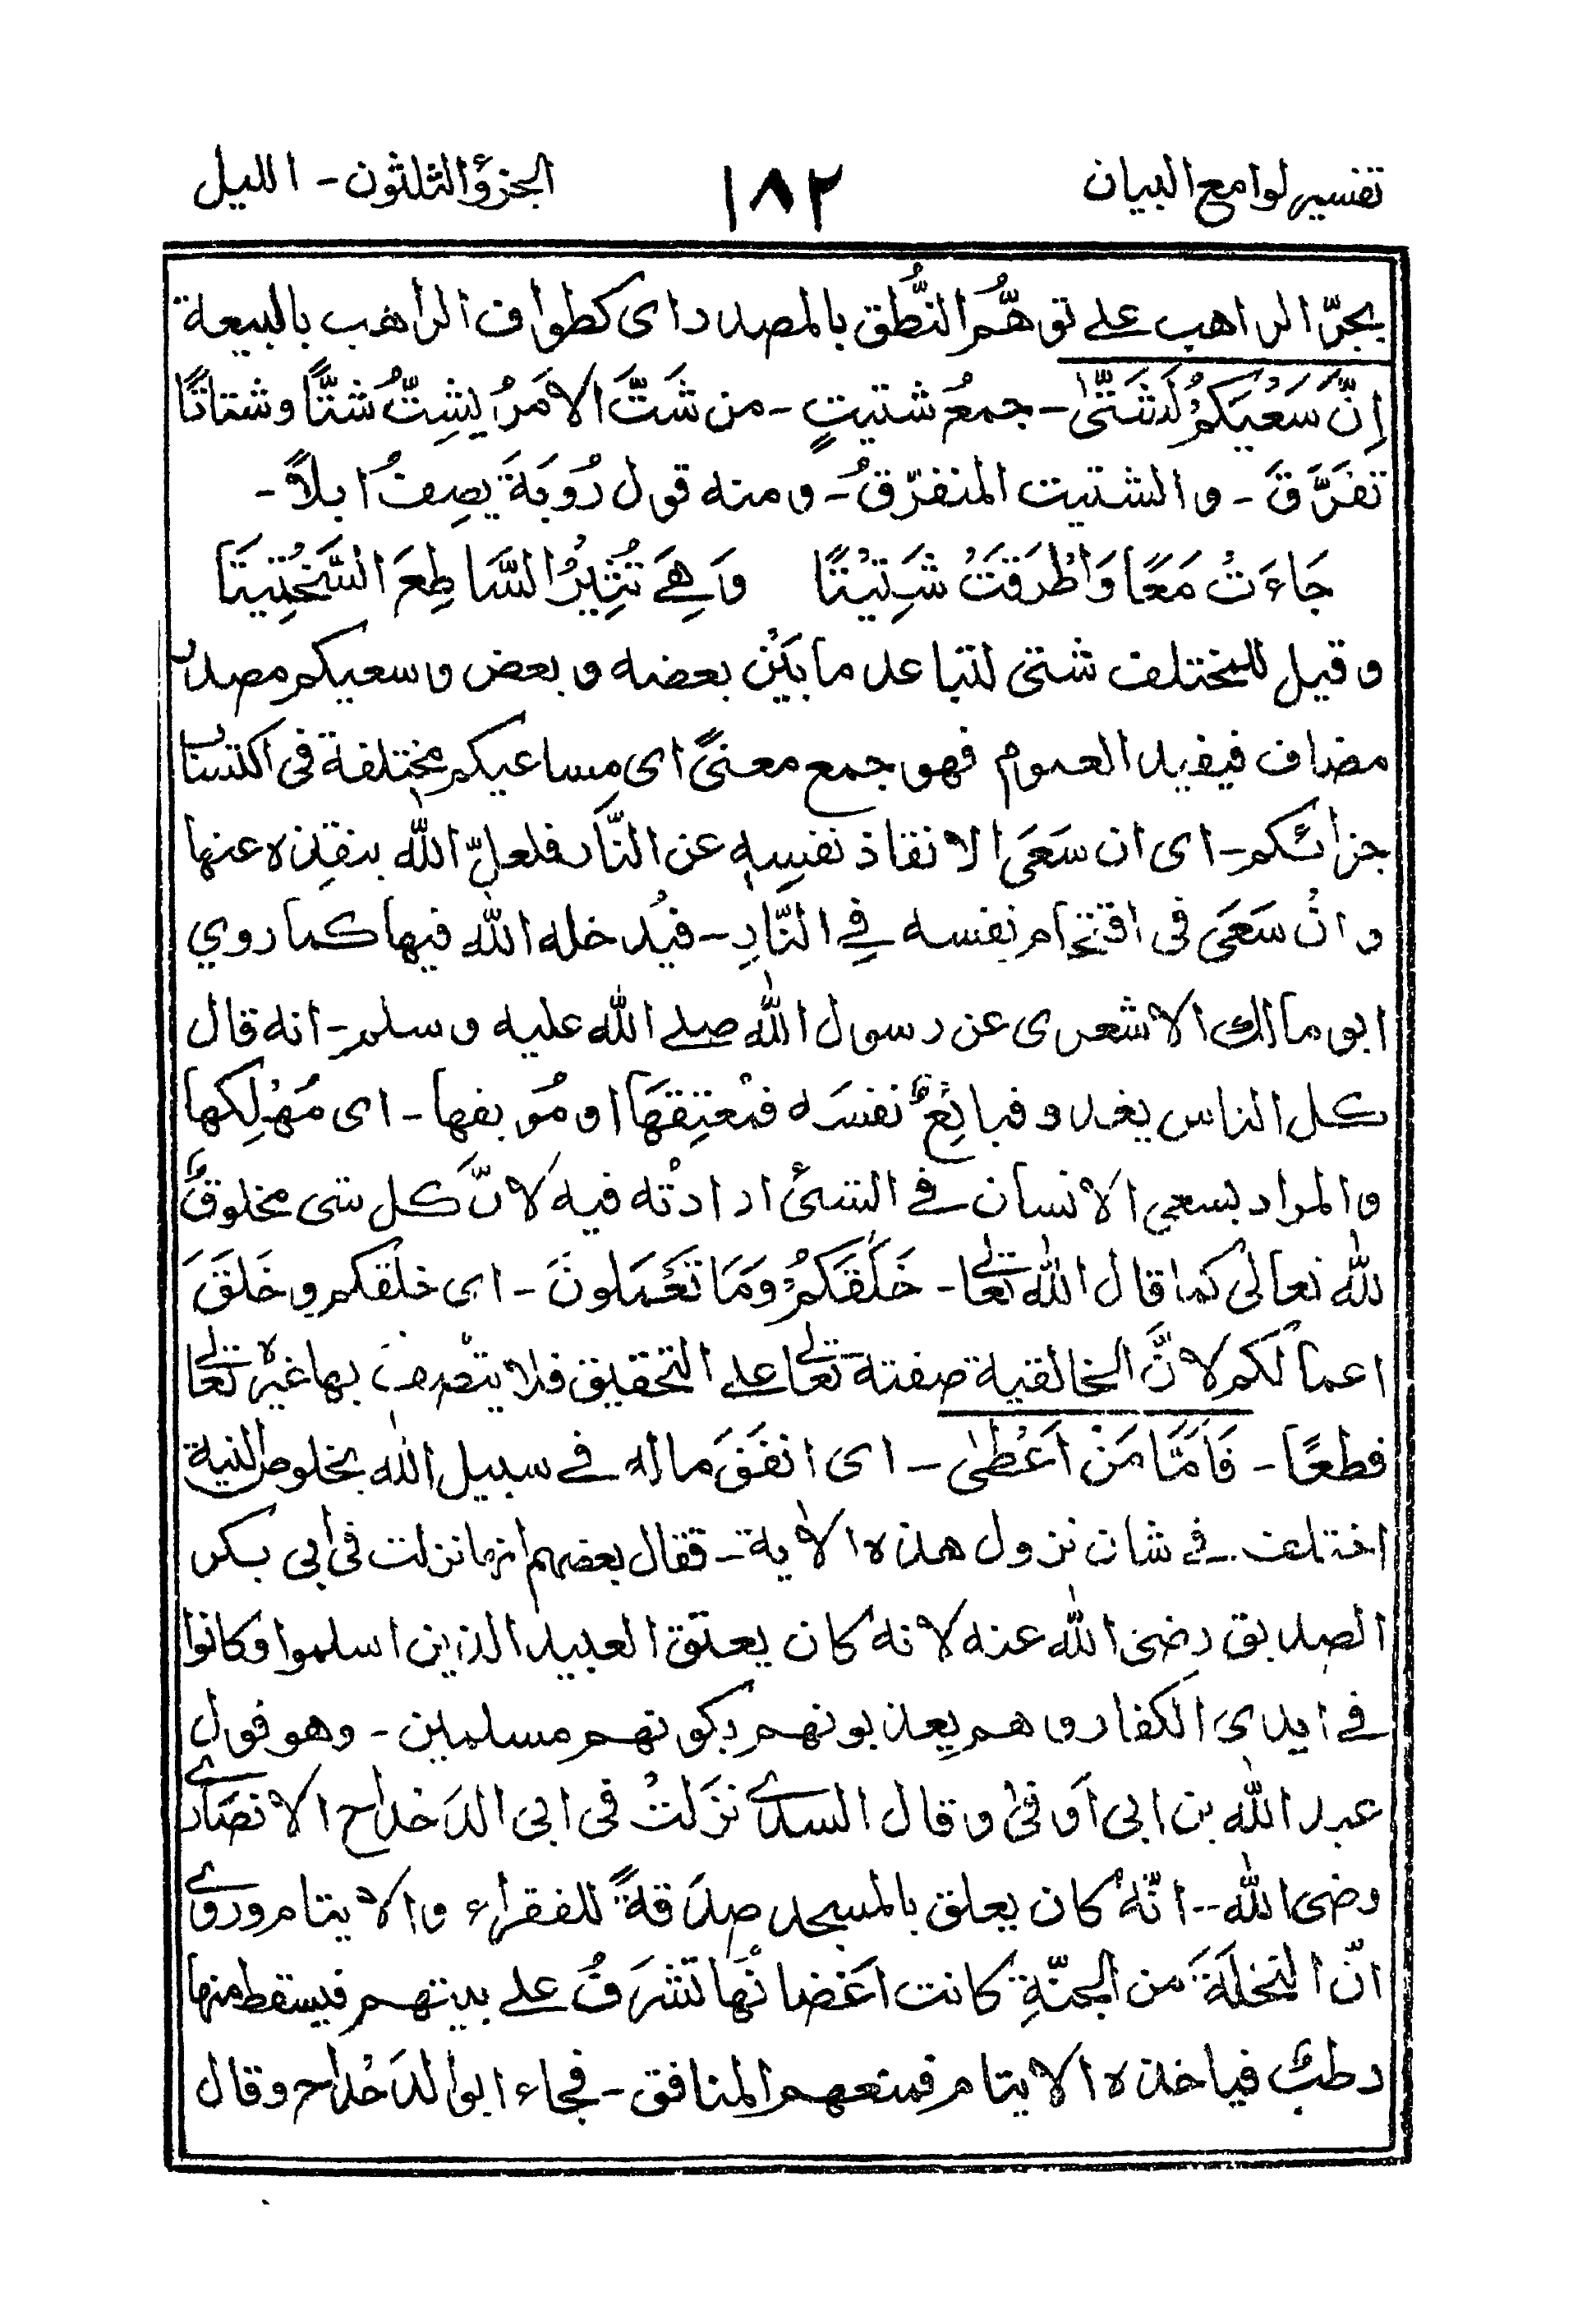 تفسير لوامع البيان ١٨٢ الجزؤ الثلثون - الليل
بجرّ الراهب على توهُّم النُّطق بالمصدر اى كطواف الراهب بالبيعة
اِنَّ سَعْيَكُمْ لَشَتّٰى - جمعُ شتيتٍ - من شَتَّ الامَرُ يشِتُّ شتًّا و شتاتًا
تفَرَّقَ - و الشتيت المتفرّقُ - ومنه قول رُوبَةَ يصِفُ ابلاً -
جَاءَتْ مَعًا وَاطْرَقَتْ شَتِيْتًا وَهِيَ تُثِيْرُ السَّاطِعَ السَّخْتِيتَا
و قيل للمختلف شتى لتباعد ما بَيْن بعضه و بعض و سعيكم مصدر
مضاف فيفيد العموم فهو جمع معنىً اى مساعيكم مختلفة فى اكتساب
جزائكم - اى ان سَعَى الانقاذ نفسِه عن النَّار فلعلّ اللّٰه ينقِذه عنها
و انْ سَعَى فى اقتحام نفسه فِي النَّارِ - فيُدخله اللّٰه فيها كما روي
ابو مالك الاشعرى عن رسول اللّٰه صلى اللّٰه عليه و سلم - انه قال
كل الناس يغدو فبائِعٌ نفسَه فمُعتِقهَا او مُوبقها - اى مُهْلِكها
و المراد بسعي الانسان في الشئ ارادتُه فيه لانّ كل شى مخلوقٌ
للّٰه تعالىٰ كما قال اللّٰه تعالى - خَلَقَكُمْ وَمَا تَعْمَلونَ - اى خلقكم و خَلَقَ
اعمالكم لانَّ الخالقية صفته تعالى على التحقيق فلا يتصف بها غيره تعالى
قطعًا - فَاَمَّا مَنْ اَعْطٰى - اى انفَقَ ماله في سبيل اللّٰه بخلوص النية
اختلف - في شان نزول هذه الاٰية - فقال بعضهم انها نزلت فى أبى بكر
الصديق رضى اللّٰه عنه لانه كان يعتق العبيد الذين اسلموا وكانوا
في ايدى الكفار و هم يعذبونهم بكونهم مسلمين - وهو قول
عبد اللّٰه بن ابى اَوفىٰ و قال السدي نزَلتْ فى ابى الدَحداح الانصَارى
رضى اللّٰه -- انّهُ كان يعلق بالمسجد صدَقةً للفقراء و الايتام وروي
انّ النخلَةَ من الجنّةِ كانت اَغْصانُها تَشْرَفُ على بيتهم فيسقط منها
رطبٌ فياخذه الايتام فمنعهم المنافق - فجاء ابو الدَحْداح و قال